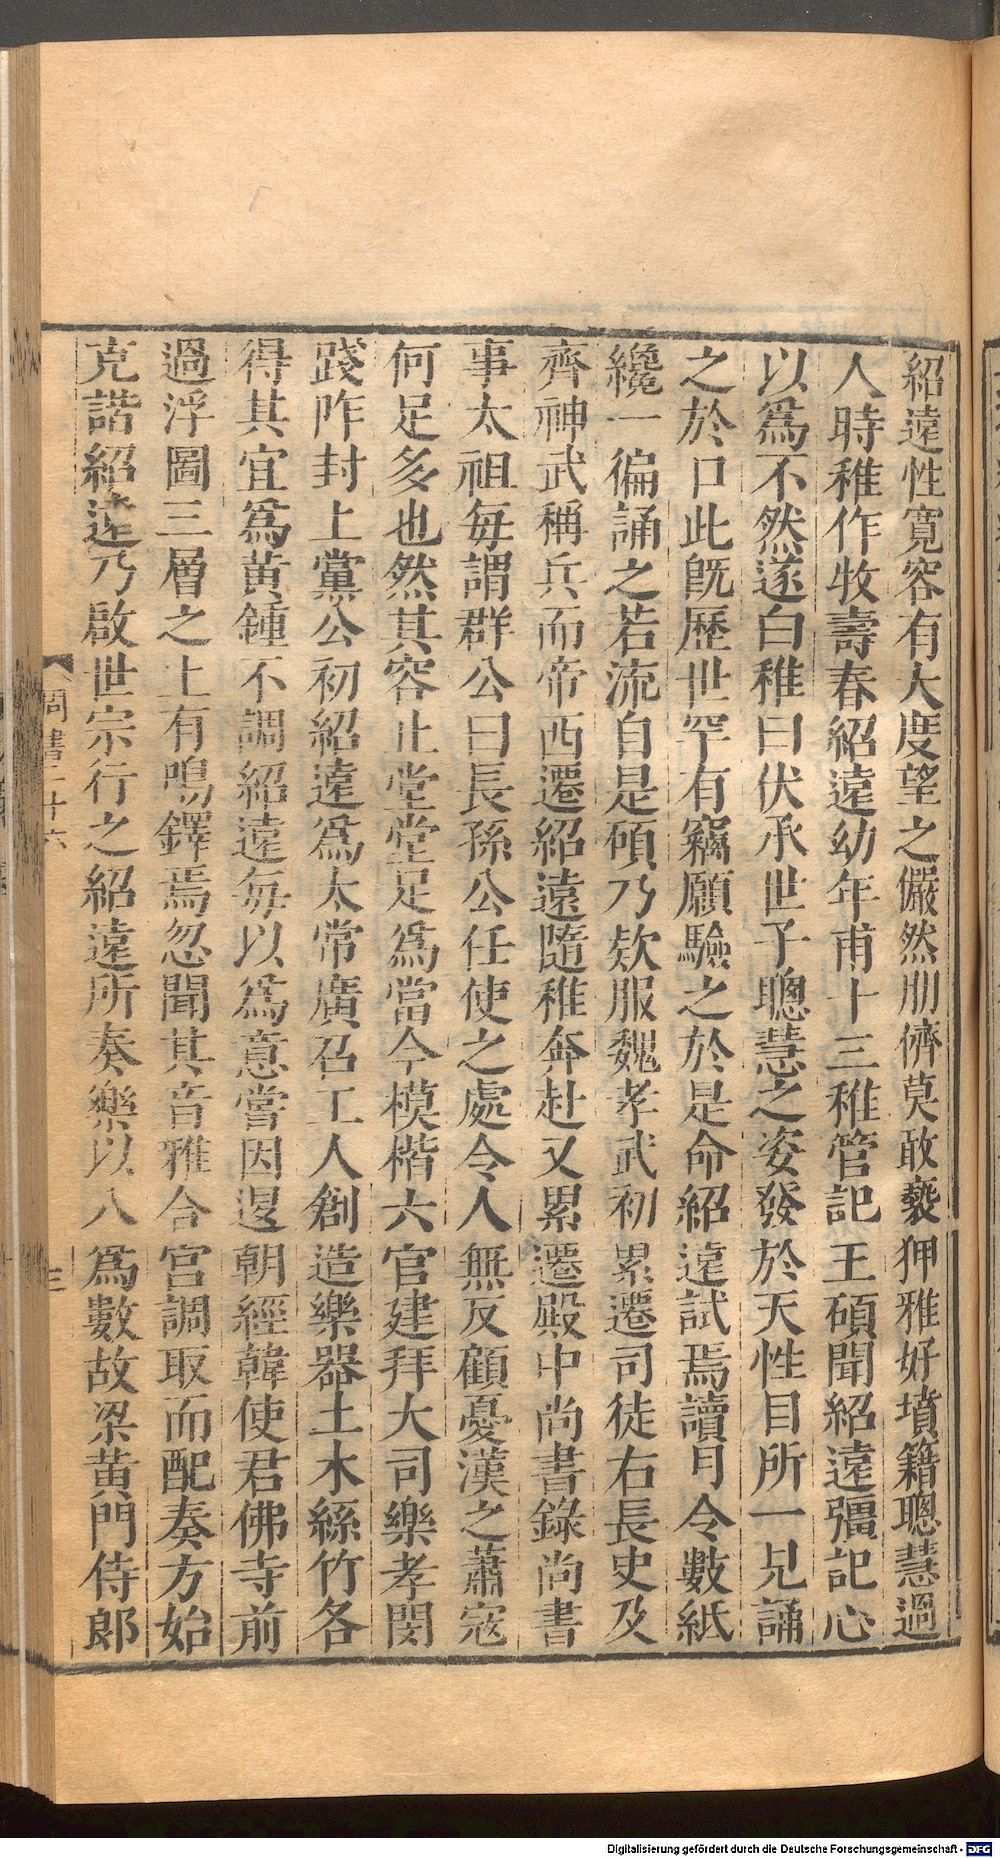 紹遠性寛容有大度望之儼然朋儕莫敢褻狎雅好墳籍聰慧過
人時稚作牧壽春紹遠幼年甫十三稚管記王碩聞紹遠彊記心
以爲不然遂白稚曰伏承世子聰慧之姿發於天性目所一見誦
之於口此旣歷世罕有竊願驗之於是命紹遠試焉讀月令數紙
纔一徧誦之若流自是碩乃歎服魏孝武初累遷司徒右長史及
齊神武稱兵而帝西遷紹遠隨稚奔赴又累遷殿中尚書錄尚書
事太祖每謂群公曰長孫公任使之處令人無反顧憂漢之蕭寇
何足多也然其容止堂堂足爲當今模楷六官建拜大司樂孝閔
踐阼封上黨公初紹遠爲太常廣召工人創造樂器土木絲竹各
得其宜爲黃鍾不調紹遠每以爲意嘗因退朝經韓使君佛寺前
過浮圖三層之上有鳴鐸焉忽聞其音雅合宮調取而配奏方始
克諧紹遠乃啟世宗行之紹遠所奏樂以八爲數故梁黃門侍郎
周書二十六
三
Digitalisierung gefördert durch die Deutsche Forschungsgemeinschaft - DFG